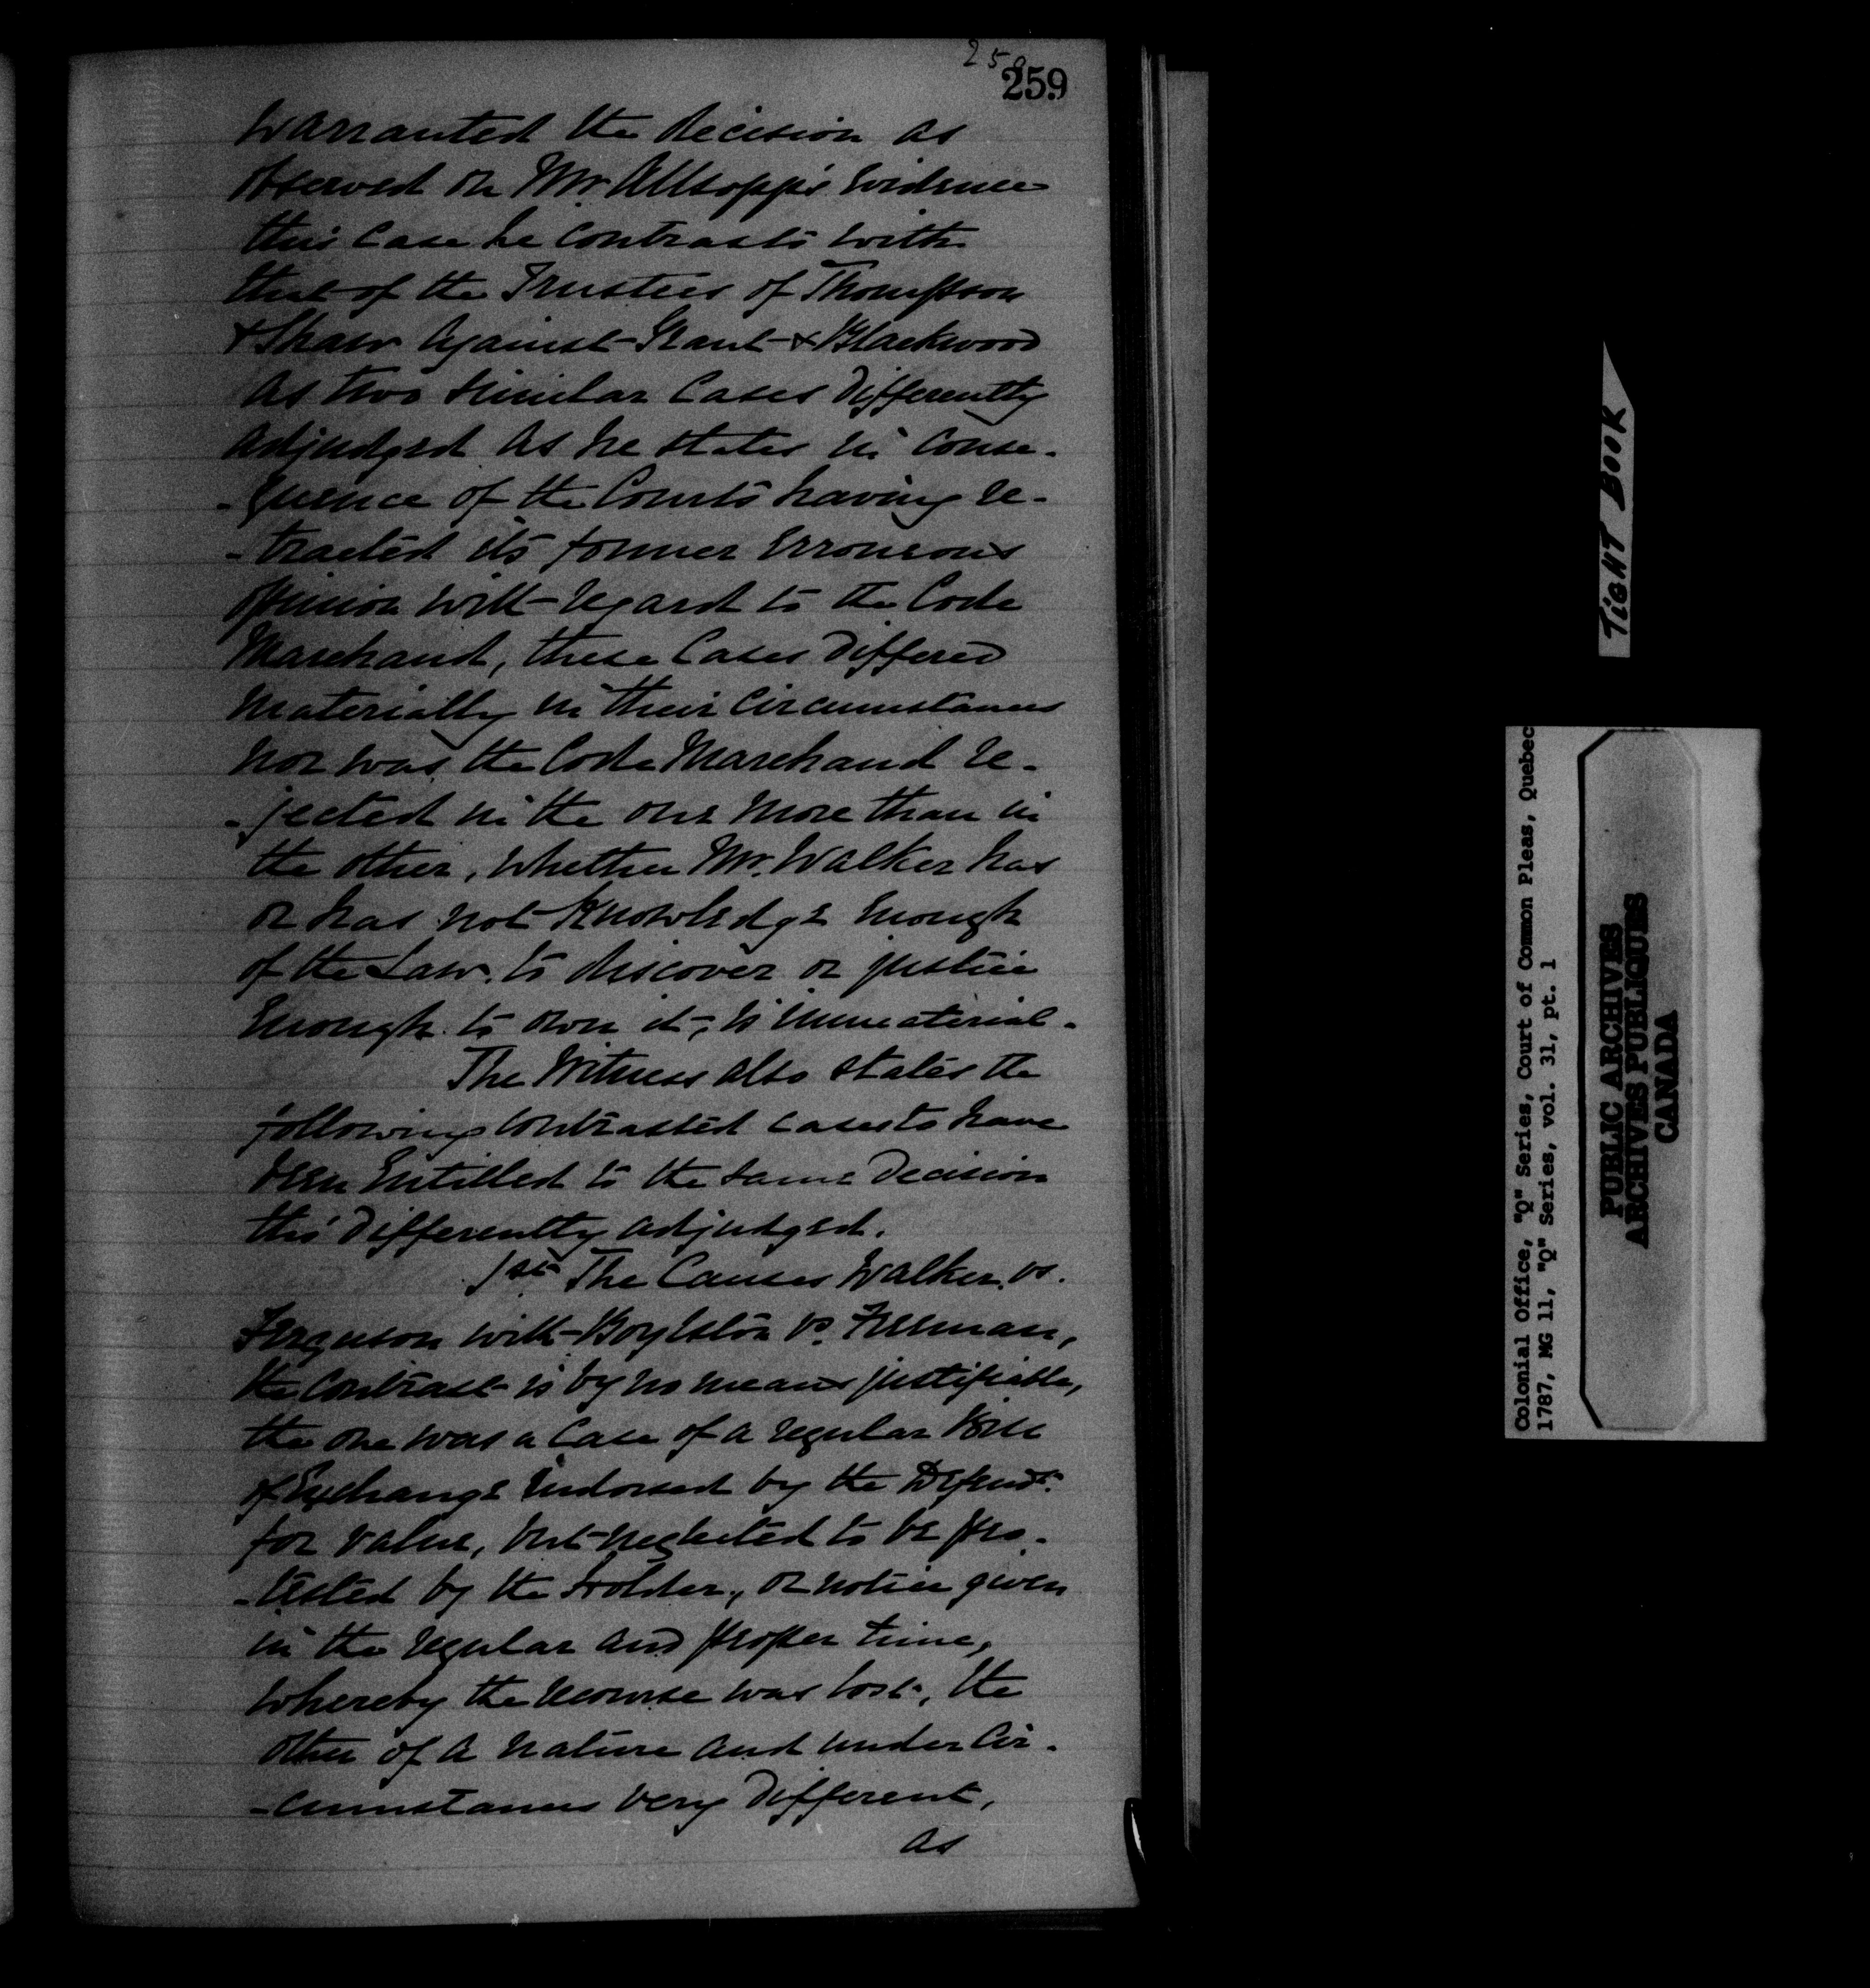 259
259
warranted the decision as
observed on Mr. Allsopp's Evidence
this Case he contrasts with
that of the Trustees of Thompson
& Shaw Against Grant & Blackwood
As two similar Cases Differently
adjudged As he states in conse-
-quence of the Courts having re-
-tracted its former Erroneous
opinion with regard to the Code
Marchand, these Cases Differed
Materially in their Circumstances
nor was the Code Marchand re-
-jected in the one more than in
the other, whether Mr. Walker has
or has not Knowledge Enough
of the Law, to discover or justice
Enough to own it, is immaterial.
The Witness also states the
following contrasted cases to have
been Entitled to the same Decision
tho' Differently adjudged.
1st The Causes Walker vs.
Ferguson with Boylston vs. Freeman,
the Contrast is by no means justifiable,
the one was a Case of a regular Bill
of Exchange Endorsed by the Defendt.
for value, but neglected to be pro-
-tested by the holder, or notice given
in the regular and proper time,
whereby the recourse was lost, the
other of a nature and under Cir-
-cumstances very Different,
as
TIGHT BOOK
Colonial Office, "Q" Series, Court of Common Pleas, Quebec
1787, MG 11, "Q" Series, vol. 31, pt. 1
PUBLIC ARCHIVES
ARCHIVES PUBLIQUES
CANADA